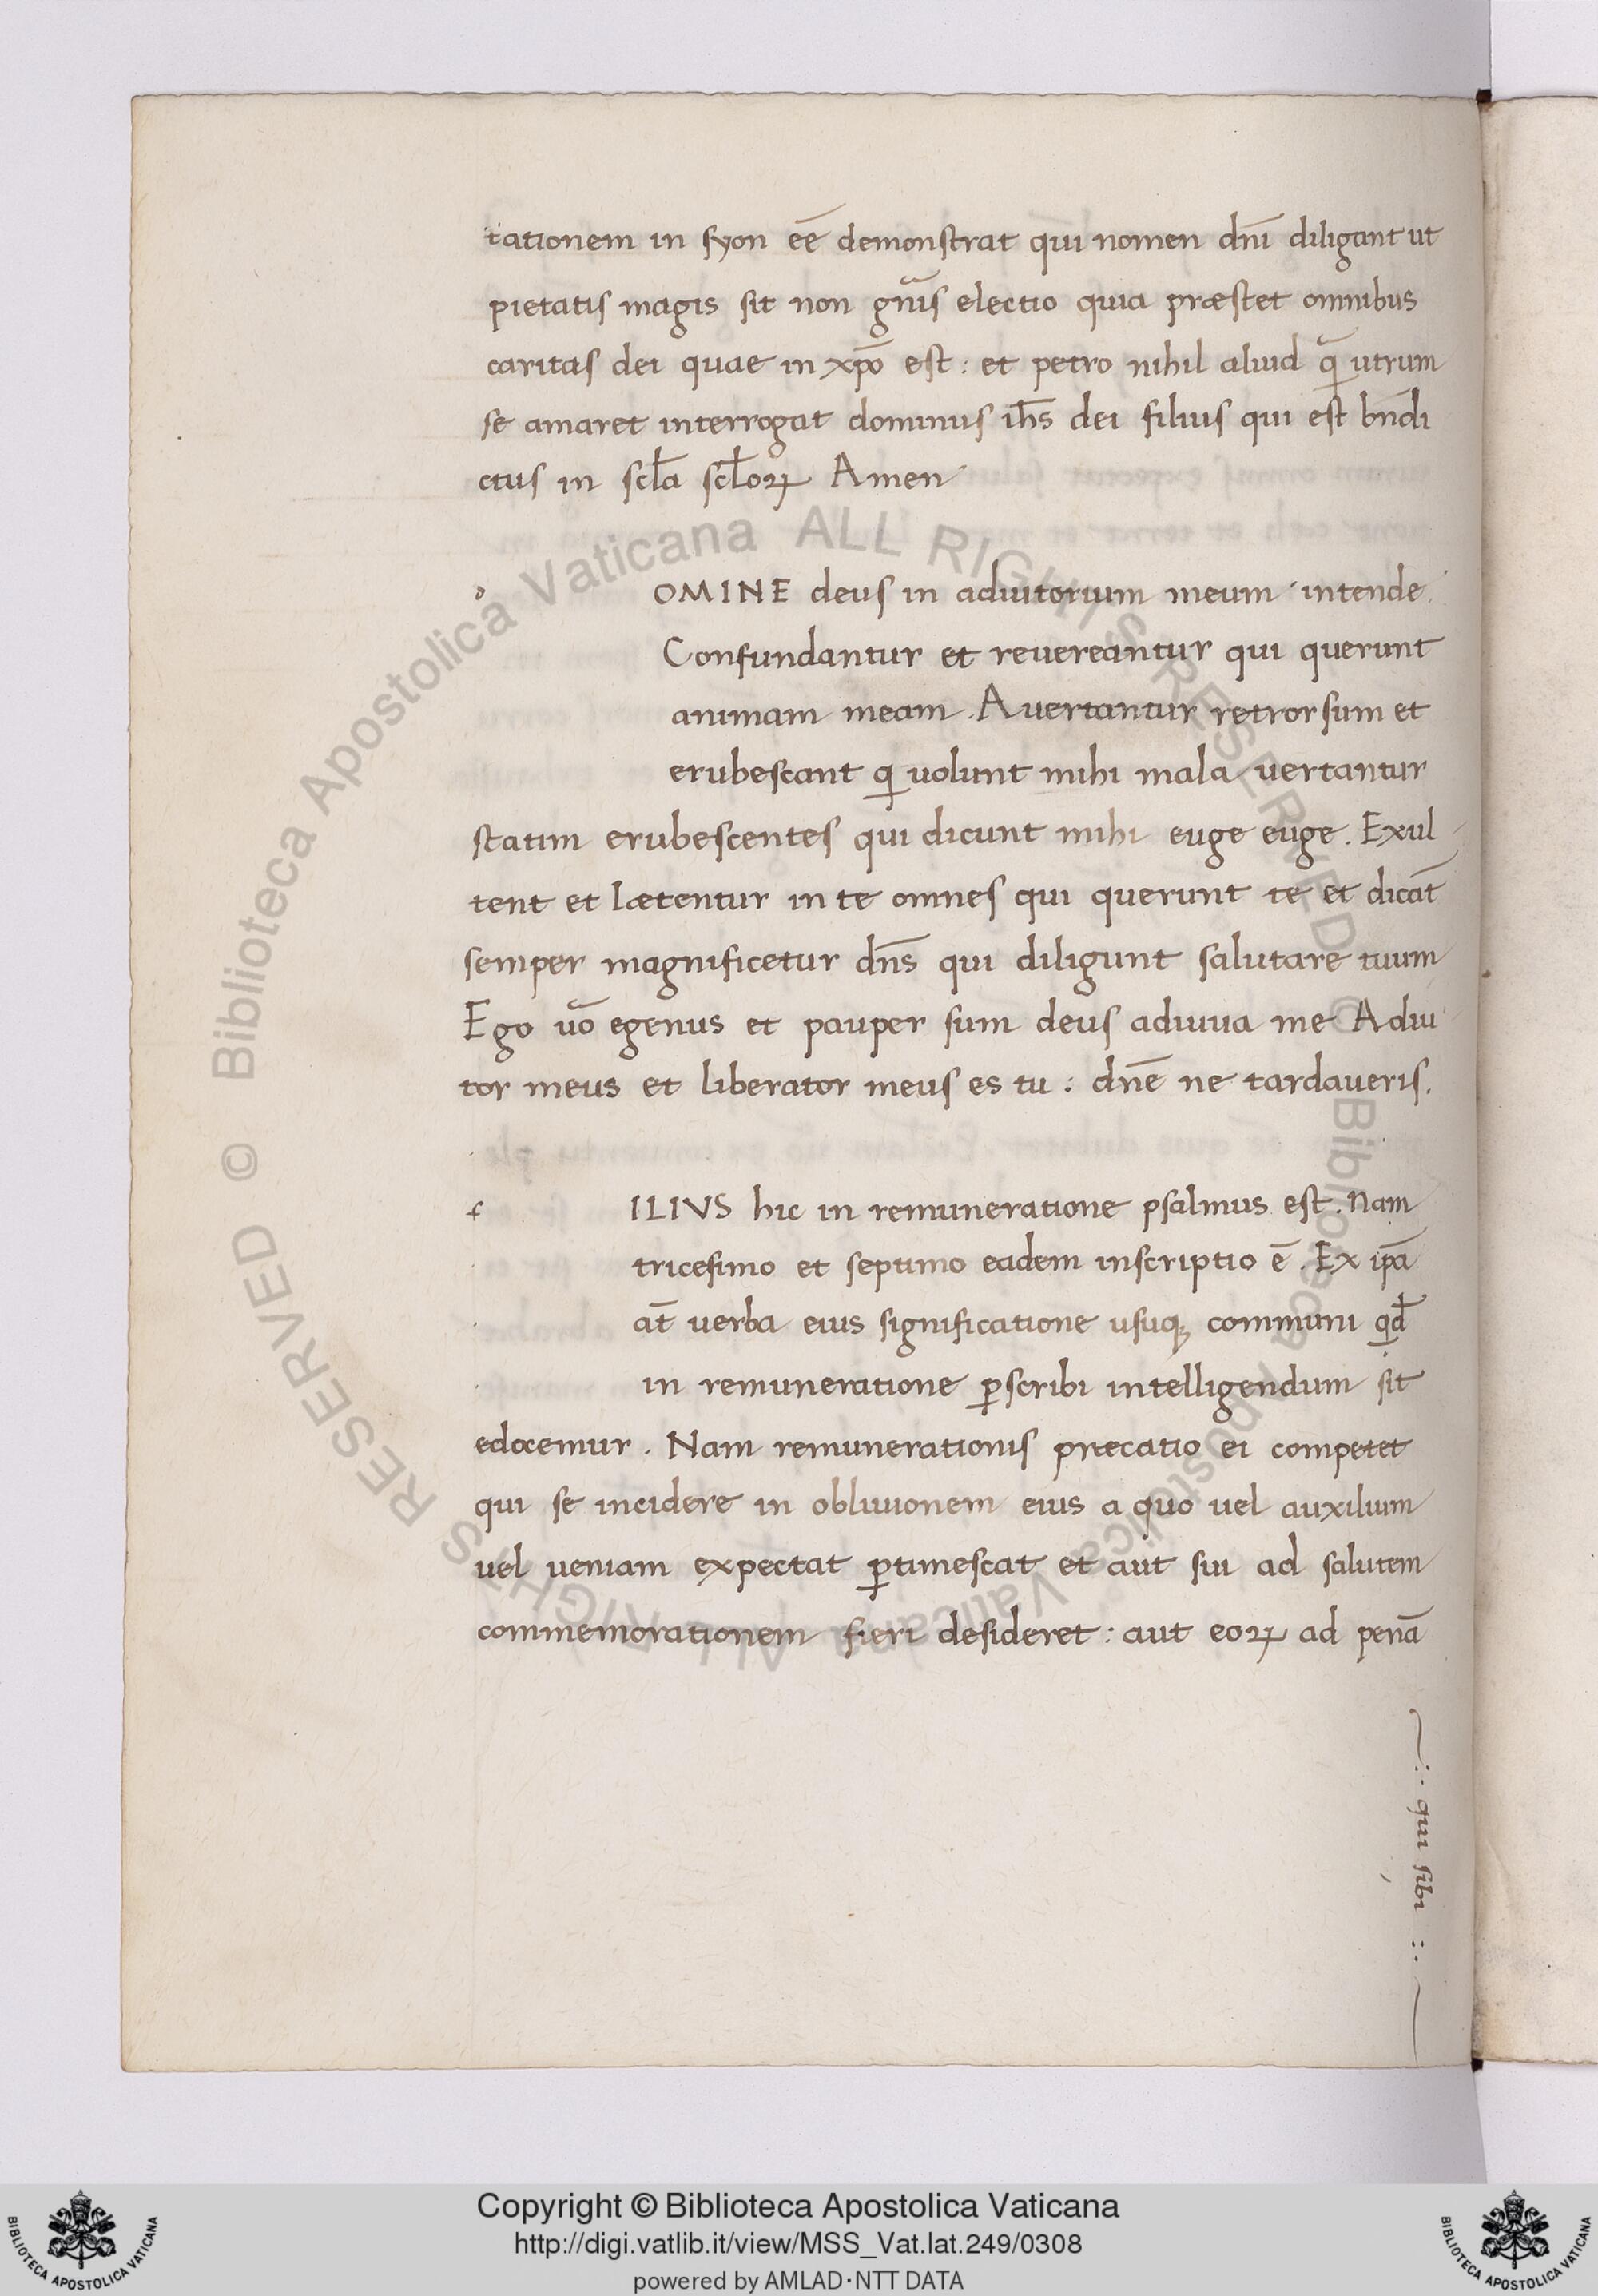 tationem in syon eē demonstrat qui nomen dn̄i diligant ut
pietatis magis sit non gn̄is electio quia præstet omnibus
caritas dei quae in xp̄o est : et petro nihil aliud q̄ utrum
se amaret interrogat dominus ih̄s dei filius qui est bn̄di
ctus in scl̄a scl̄oꝝ Amen
d OMINE deus in adiutorium meum intende.
Confundantur et revereantur qui querunt
animam meam . Avertantur retrorsum et
erubescant q uolunt mihi mala vertantur
statim erubescentes qui dicunt mihi euge euge . Exul
tent et lætentur in te omnes qui querunt te et dicāt
semper magnificetur dn̄s qui diligunt salutare tuum
Ego uō egenus et pauper sum deus adiuua me Adiu
tor meus et liberator meus es tu : dn̄e ne tardaveris.
f ILIVS hic in remuneratione psalmus est . Nam
tricesimo et septimo eadem inscriptio ē . Ex ip̄a
at̄ uerba eius significatione usuqꝫ communi qd̄
in remuneratione ꝑscribi intelligendum sit
edocemur . Nam remunerationis præcatio ei competet
qui se incidere in obliuionem eius a quo uel auxilium
uel ueniam expectat ꝑtimescat et aut sui ad salutem
commemorationem fieri desideret : aut eoꝝ ad penā
qui sibi
© Biblioteca Apostolica Vaticana ALL RIGHTS RESERVED © Biblioteca Apostolica Vaticana ALL RIGHTS RESERVED
Copyright © Biblioteca Apostolica Vaticana
http://digi.vatlib.it/view/MSS_Vat.lat.249/0308
powered by AMLAD·NTT DATA
BIBLIOTECA APOSTOLICA VATICANA
BIBLIOTECA APOSTOLICA VATICANA